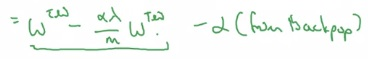 = W^{[l]} - \frac{\alpha\lambda}{m} W^{[l]} - α (from Backpop)